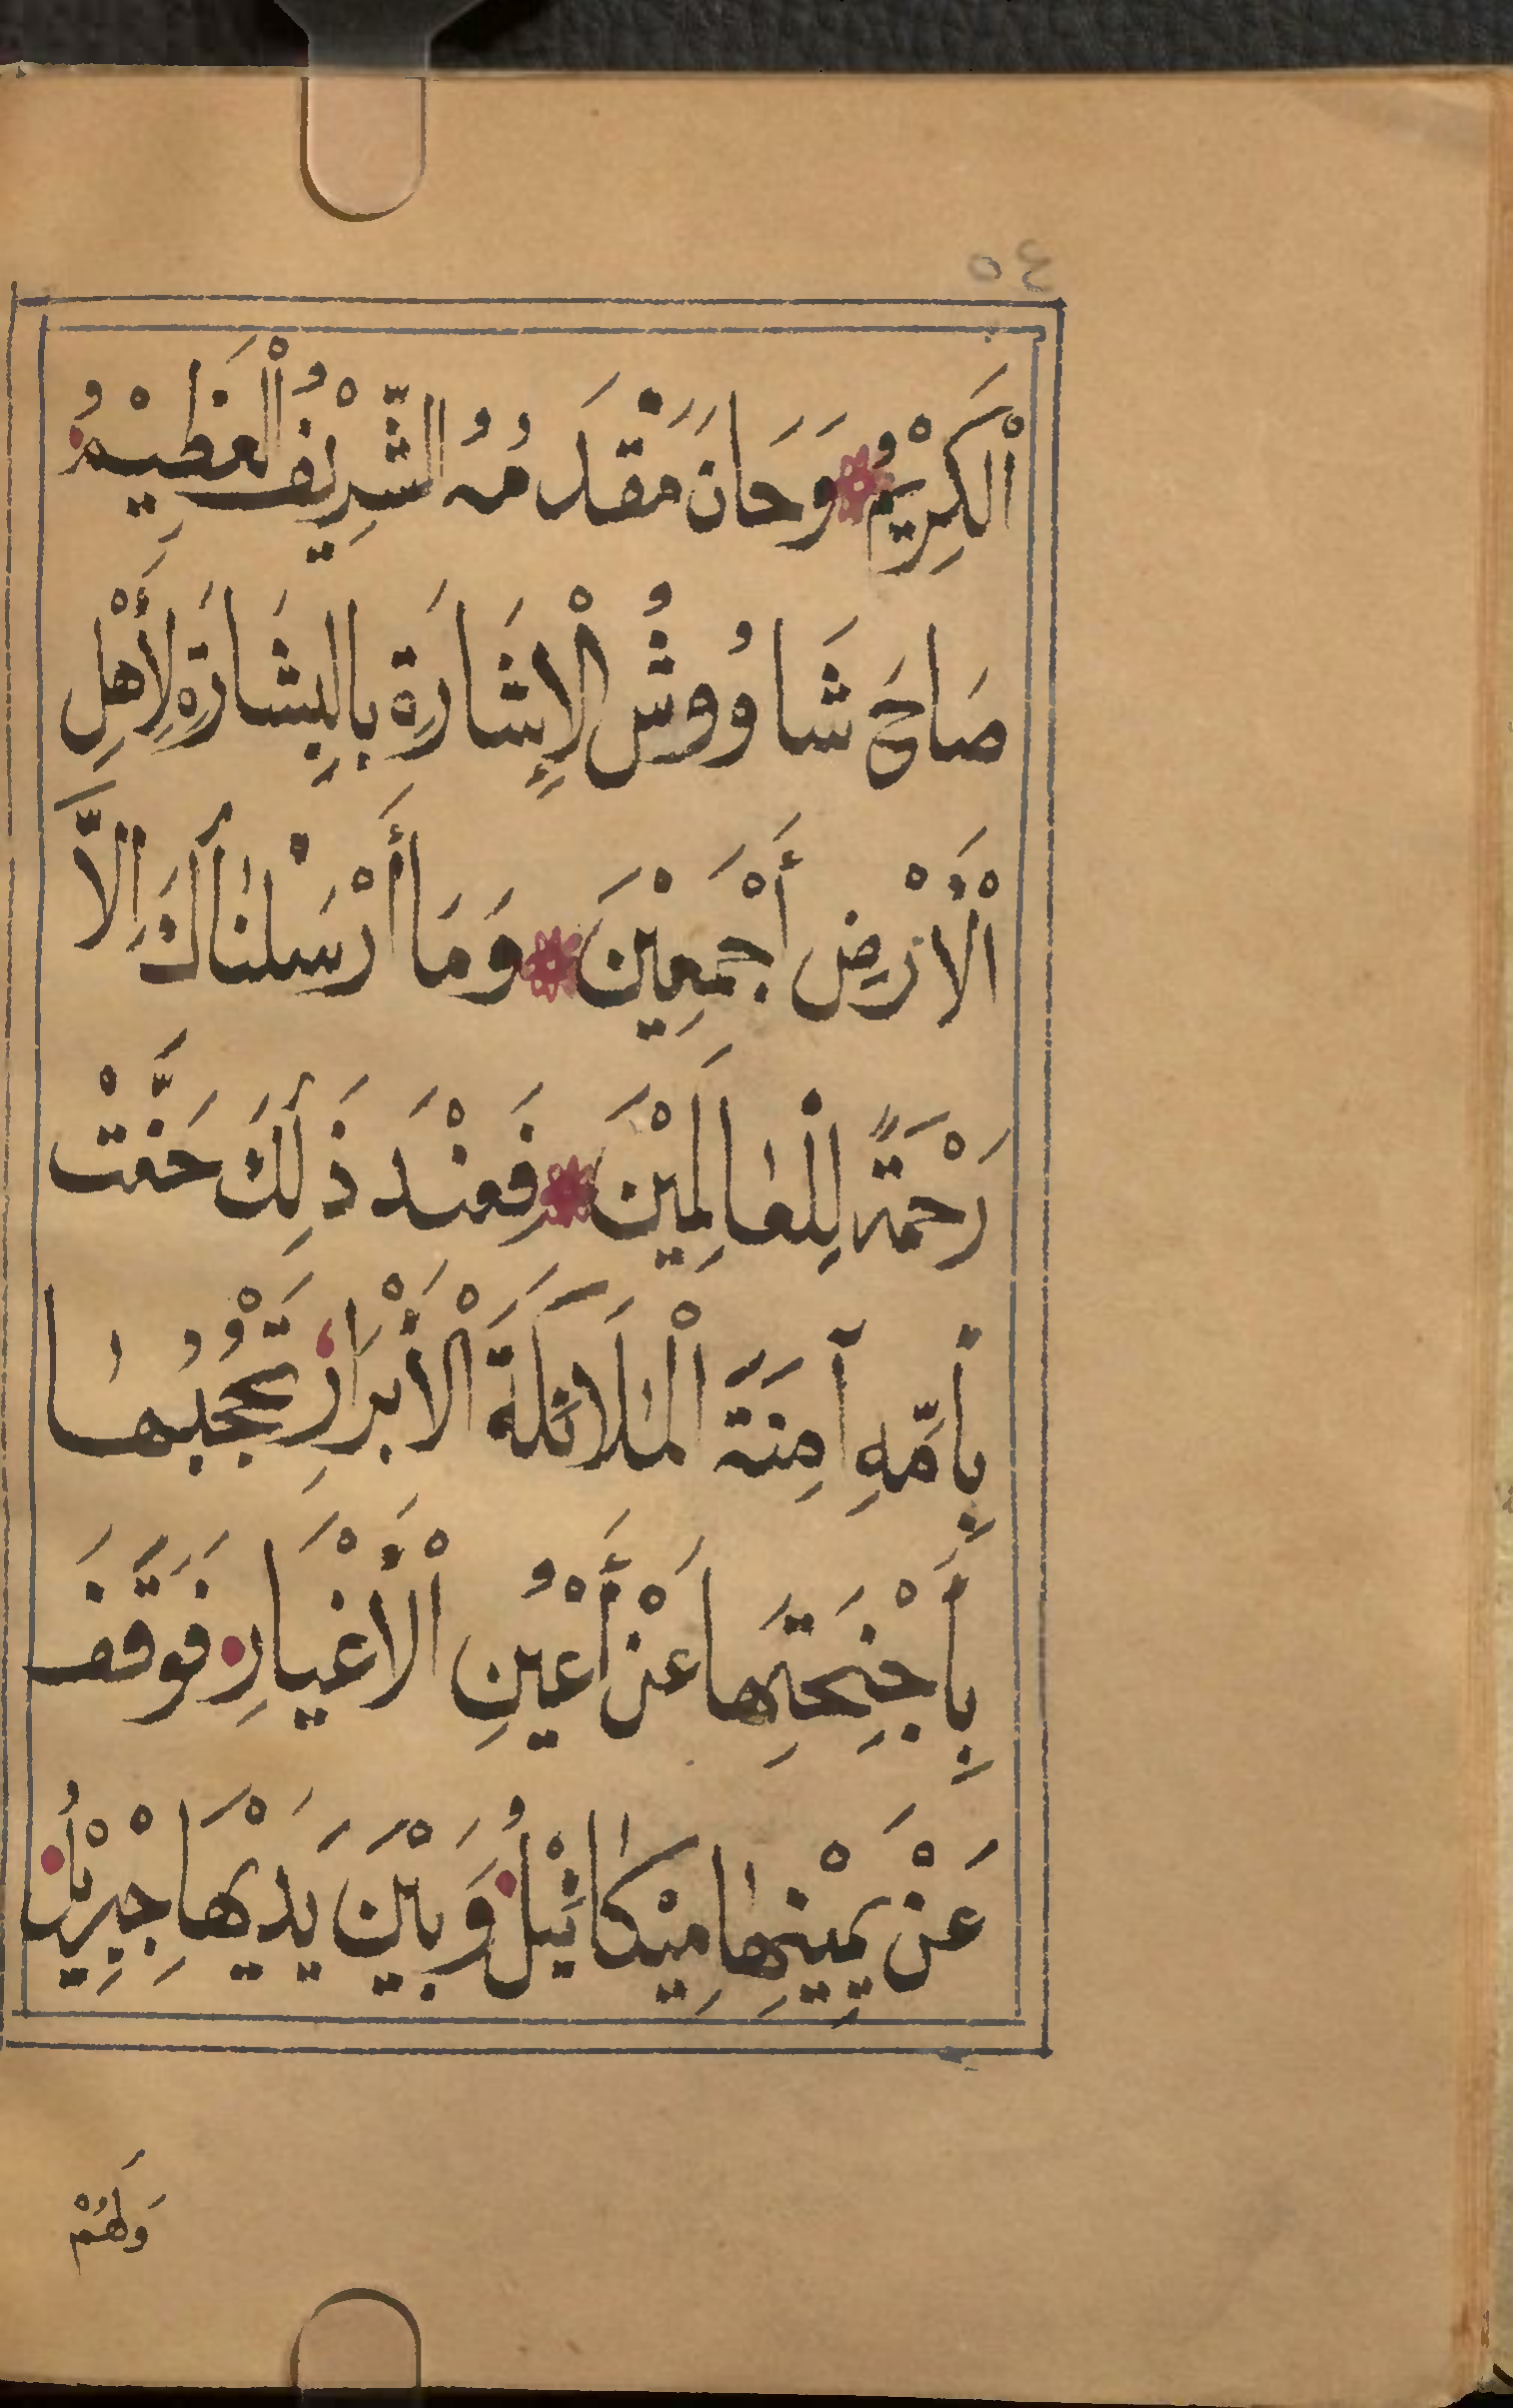 ٥٤
اَلْكَرِيْمُ ۞ وَحَانَ مَقْدَمُهُ الشَّرِيْفُ الْعَظِيْمُ
صَاحَ شَاوُوْشُ الْإِشَارَةِ بِالْبِشَارَةِ لِأَهْلِ
الْأَرْضِ أَجْمَعِيْنَ ۞ وَمَا أَرْسَلْنَاكَ اِلَّا
رَحْمَةً لِلْعَالَمِيْنَ ۞ فَعِنْدَ ذَلِكَ حَفَّتْ
بِأُمِّهِ آمِنَةَ الْمَلَائِكَةُ الْأَبْرَارُ تَحْجُبُهَا
بِأَجْنِحَتِهَا عَنْ أَعْيُنِ الْأَغْيَارِ فَوَقَفَ
عَنْ يَمِيْنِهَا مِيْكَائِيْلُ وَبَيْنَ يَدَيْهَا جِبْرِيْلُ
وَلَهُمْ